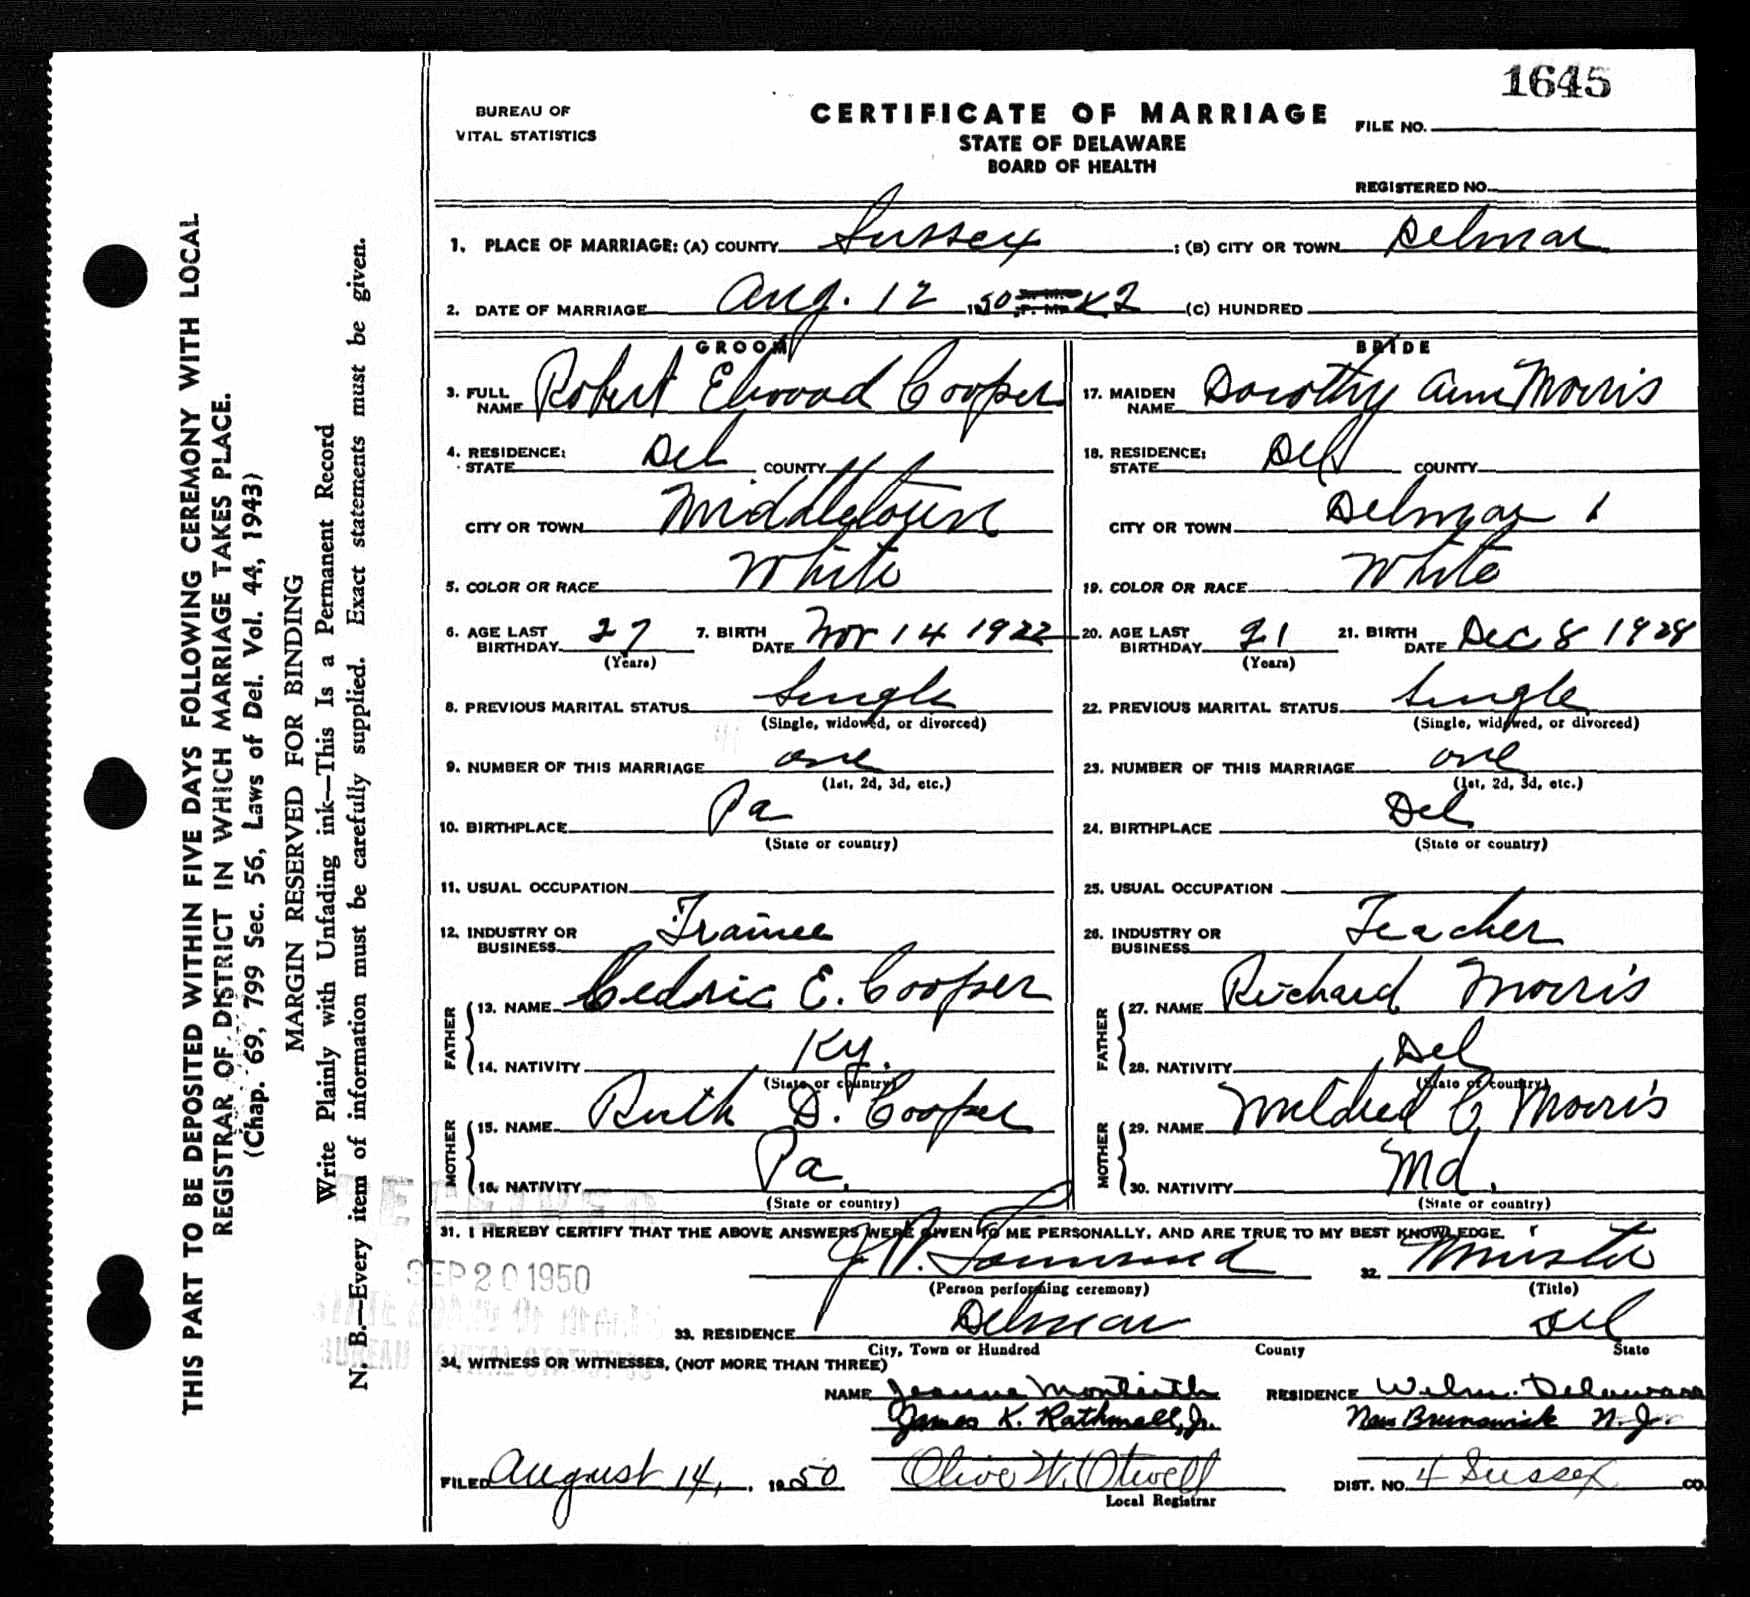 THIS PART TO BE DEPOSITED WITHIN FIVE DAYS FOLLOWING CEREMONY WITH LOCAL
REGISTRAR OF DISTRICT IN WHICH MARRIAGE TAKES PLACE.
(Chap. 69, 799 Sec. 56, Laws of Del. Vol. 44, 1943)
MARGIN RESERVED FOR BINDING
Write Plainly with Unfading ink—This Is a Permanent Record
N. B.—Every item of information must be carefully supplied. Exact statements must be given.
1645
BUREAU OF
VITAL STATISTICS
CERTIFICATE OF MARRIAGE
STATE OF DELAWARE
BOARD OF HEALTH
FILE NO.
REGISTERED NO.
1. PLACE OF MARRIAGE: (A) COUNTY Sussex ; (B) CITY OR TOWN Delmar
2. DATE OF MARRIAGE Aug. 12 1950 2 (C) HUNDRED
GROOM
3. FULL NAME Robert Elwood Cooper
4. RESIDENCE: STATE Del COUNTY
CITY OR TOWN Middletown
5. COLOR OR RACE White
6. AGE LAST BIRTHDAY 27 (Years) 7. BIRTH DATE Nov 14 1922
8. PREVIOUS MARITAL STATUS Single
(Single, widowed, or divorced)
9. NUMBER OF THIS MARRIAGE one
(1st, 2d, 3d, etc.)
10. BIRTHPLACE Pa
(State or country)
11. USUAL OCCUPATION
12. INDUSTRY OR BUSINESS Trainee
FATHER
13. NAME Cedric E. Cooper
14. NATIVITY Ky.
(State or country)
MOTHER
15. NAME Ruth D. Cooper
16. NATIVITY Pa.
(State or country)
BRIDE
17. MAIDEN NAME Dorothy Ann Morris
18. RESIDENCE: STATE Del COUNTY
CITY OR TOWN Delmar 1
19. COLOR OR RACE White
20. AGE LAST BIRTHDAY 21 (Years) 21. BIRTH DATE Dec 8 1928
22. PREVIOUS MARITAL STATUS Single
(Single, widowed, or divorced)
23. NUMBER OF THIS MARRIAGE one
(1st, 2d, 3d, etc.)
24. BIRTHPLACE Del
(State or country)
25. USUAL OCCUPATION
26. INDUSTRY OR BUSINESS Teacher
FATHER
27. NAME Richard Morris
28. NATIVITY Del
(State or country)
MOTHER
29. NAME Mildred C Morris
30. NATIVITY Md.
(State or country)
RECEIVED
SEP 20 1950
31. I HEREBY CERTIFY THAT THE ABOVE ANSWERS WERE GIVEN TO ME PERSONALLY, AND ARE TRUE TO MY BEST KNOWLEDGE.
J W. Townsend 32. Minister
(Person performing ceremony) (Title)
33. RESIDENCE Delmar Del
City, Town or Hundred County State
34. WITNESS OR WITNESSES, (NOT MORE THAN THREE)
NAME Jeanne Monteith RESIDENCE Wilm. Delaware
James K. Rathmell, Jr. New Brunswick N. J.
FILED August 14, 1950 Olive W. Otwell DIST. NO. 4 Sussex CO.
Local Registrar